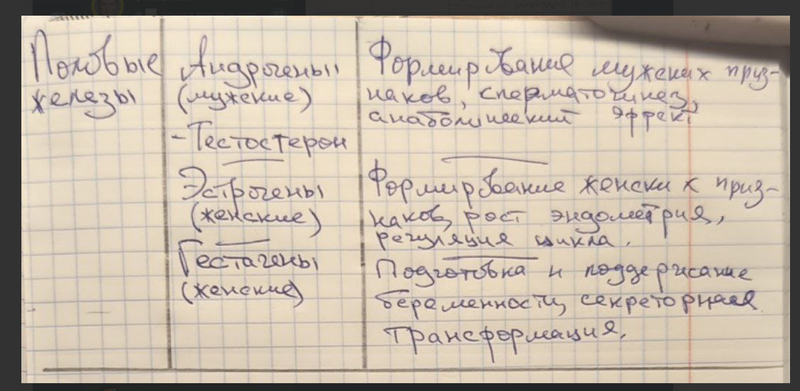 Половые
железы
Андрогены
(мужские)
- Тестостерон
Формирование мужских приз-
наков, сперматогинез,
анаболический эффект
Эстрогены
(женские)
Формирование женских приз-
наков, рост эндометрия,
регуляция цикла.
Гестагены
(женские)
Подготовка и поддержание
беременности, секреторная
трансформация.